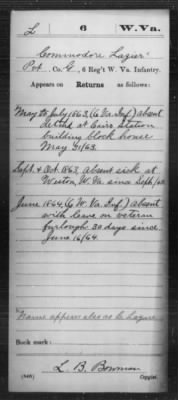 L 6 W. Va.
Commodore Lazier
Pvt., Co. G, 6 Reg't W. Va. Infantry.
Appears on Returns as follows:
May to July 1863, (6 Va. Inf.) absent
detchd at Cairo Station
building block house
May 31/63.
Sept. & Oct. 1863, Absent sick at
Weston, W. Va. since Sept /63
June 1864, (6 W. Va. Inf.) absent
with leave on veteran
furlough 30 days since
June 16/64.
Name appears also as C. Lazure
Book mark:
L. B. Bowman
(546) Copyist.